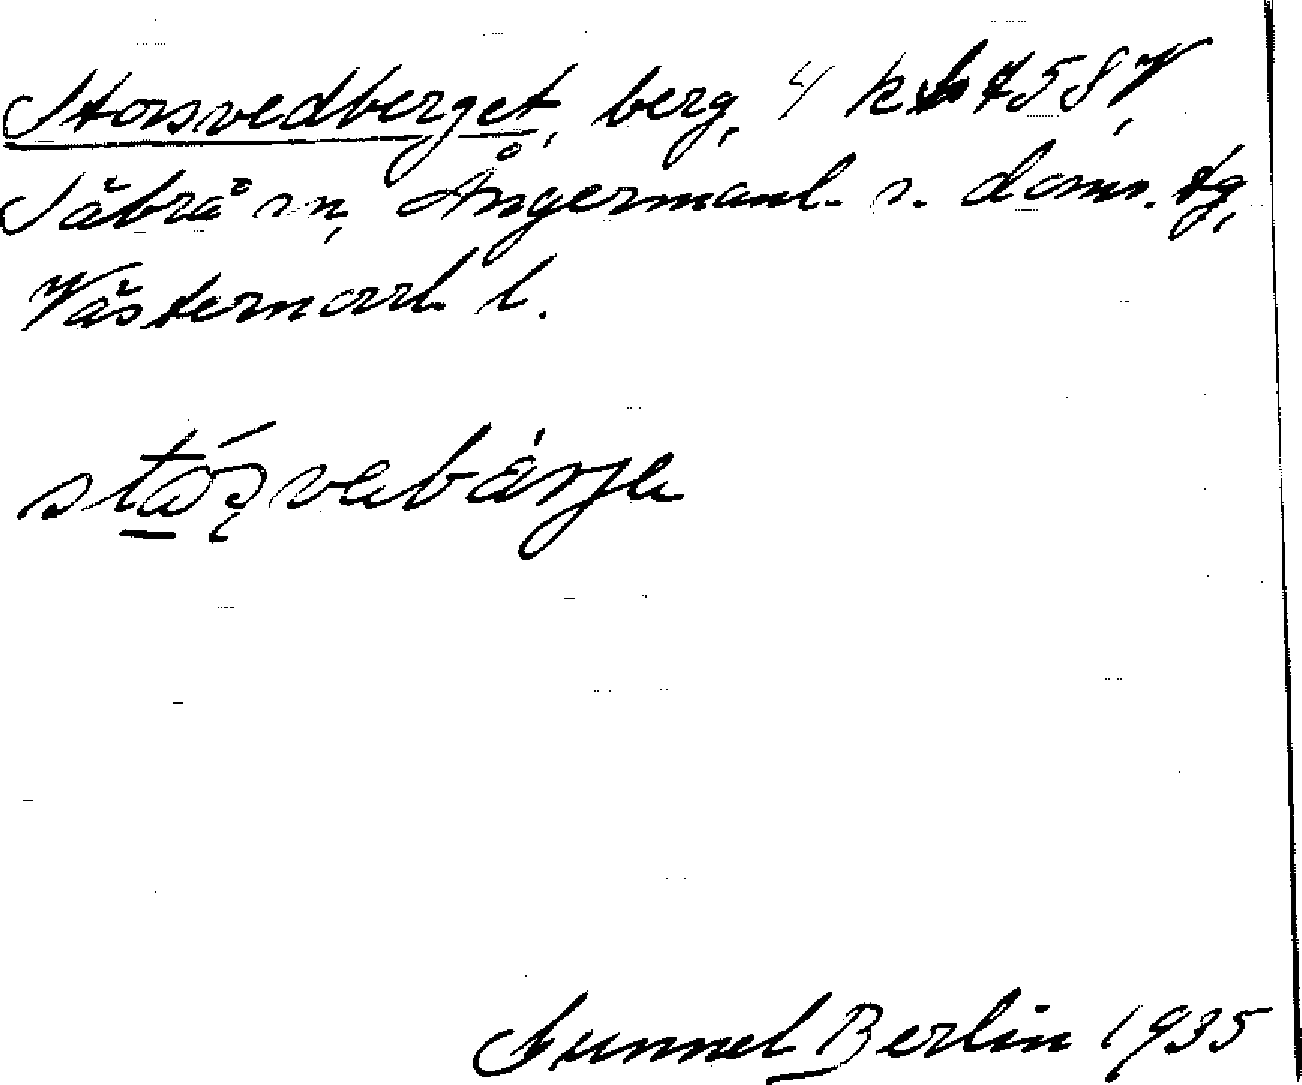 Storsvedberget, berg, 4 kbt 58 V,
Säbrå sn, Ångermanl. s. doms. tg,
Västernorrl. l.
Gunnel Berlin 1935